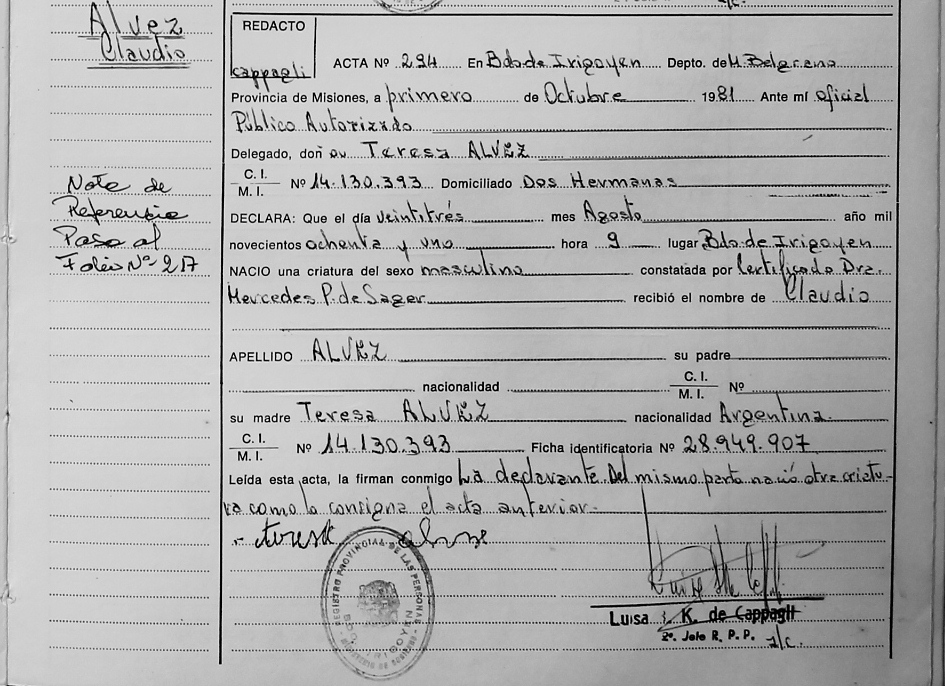 Alvez
Claudio
Note de
Referencia
Paso al
Folio Nº 217
REDACTO
cappagli
ACTA Nº 294 En Bdo de Irigoyen Depto. de M. Belgrano
Provincia de Misiones, a primero de Octubre 1981 Ante mí oficial
Público Autorizado
Delegado, doñ Teresa ALVEZ
C. I.
M. I. Nº 14.130.393 Domiciliado Dos Hermanas
DECLARA: Que el día veintitrés mes Agosto año mil
novecientos ochenta y uno hora 9 lugar Bdo de Irigoyen
NACIO una criatura del sexo masculino constatada por Certificado Dra.
Mercedes P. de Sager recibió el nombre de Claudio
APELLIDO ALVEZ su padre
nacionalidad C. I.
M. I. Nº
su madre Teresa ALVEZ nacionalidad Argentina.
C. I.
M. I. Nº 14.130.393 Ficha identificatoria Nº 28.949.907
Leída esta acta, la firman conmigo La declarante. Del mismo parto nació otra criatu-
ra como lo consigna el acta anterior.-
REGISTRO PROVINCIAL DE LAS PERSONAS
IRIGOYEN
Luisa K. de Cappagli
2º. Jefe R. P. P. a/c.